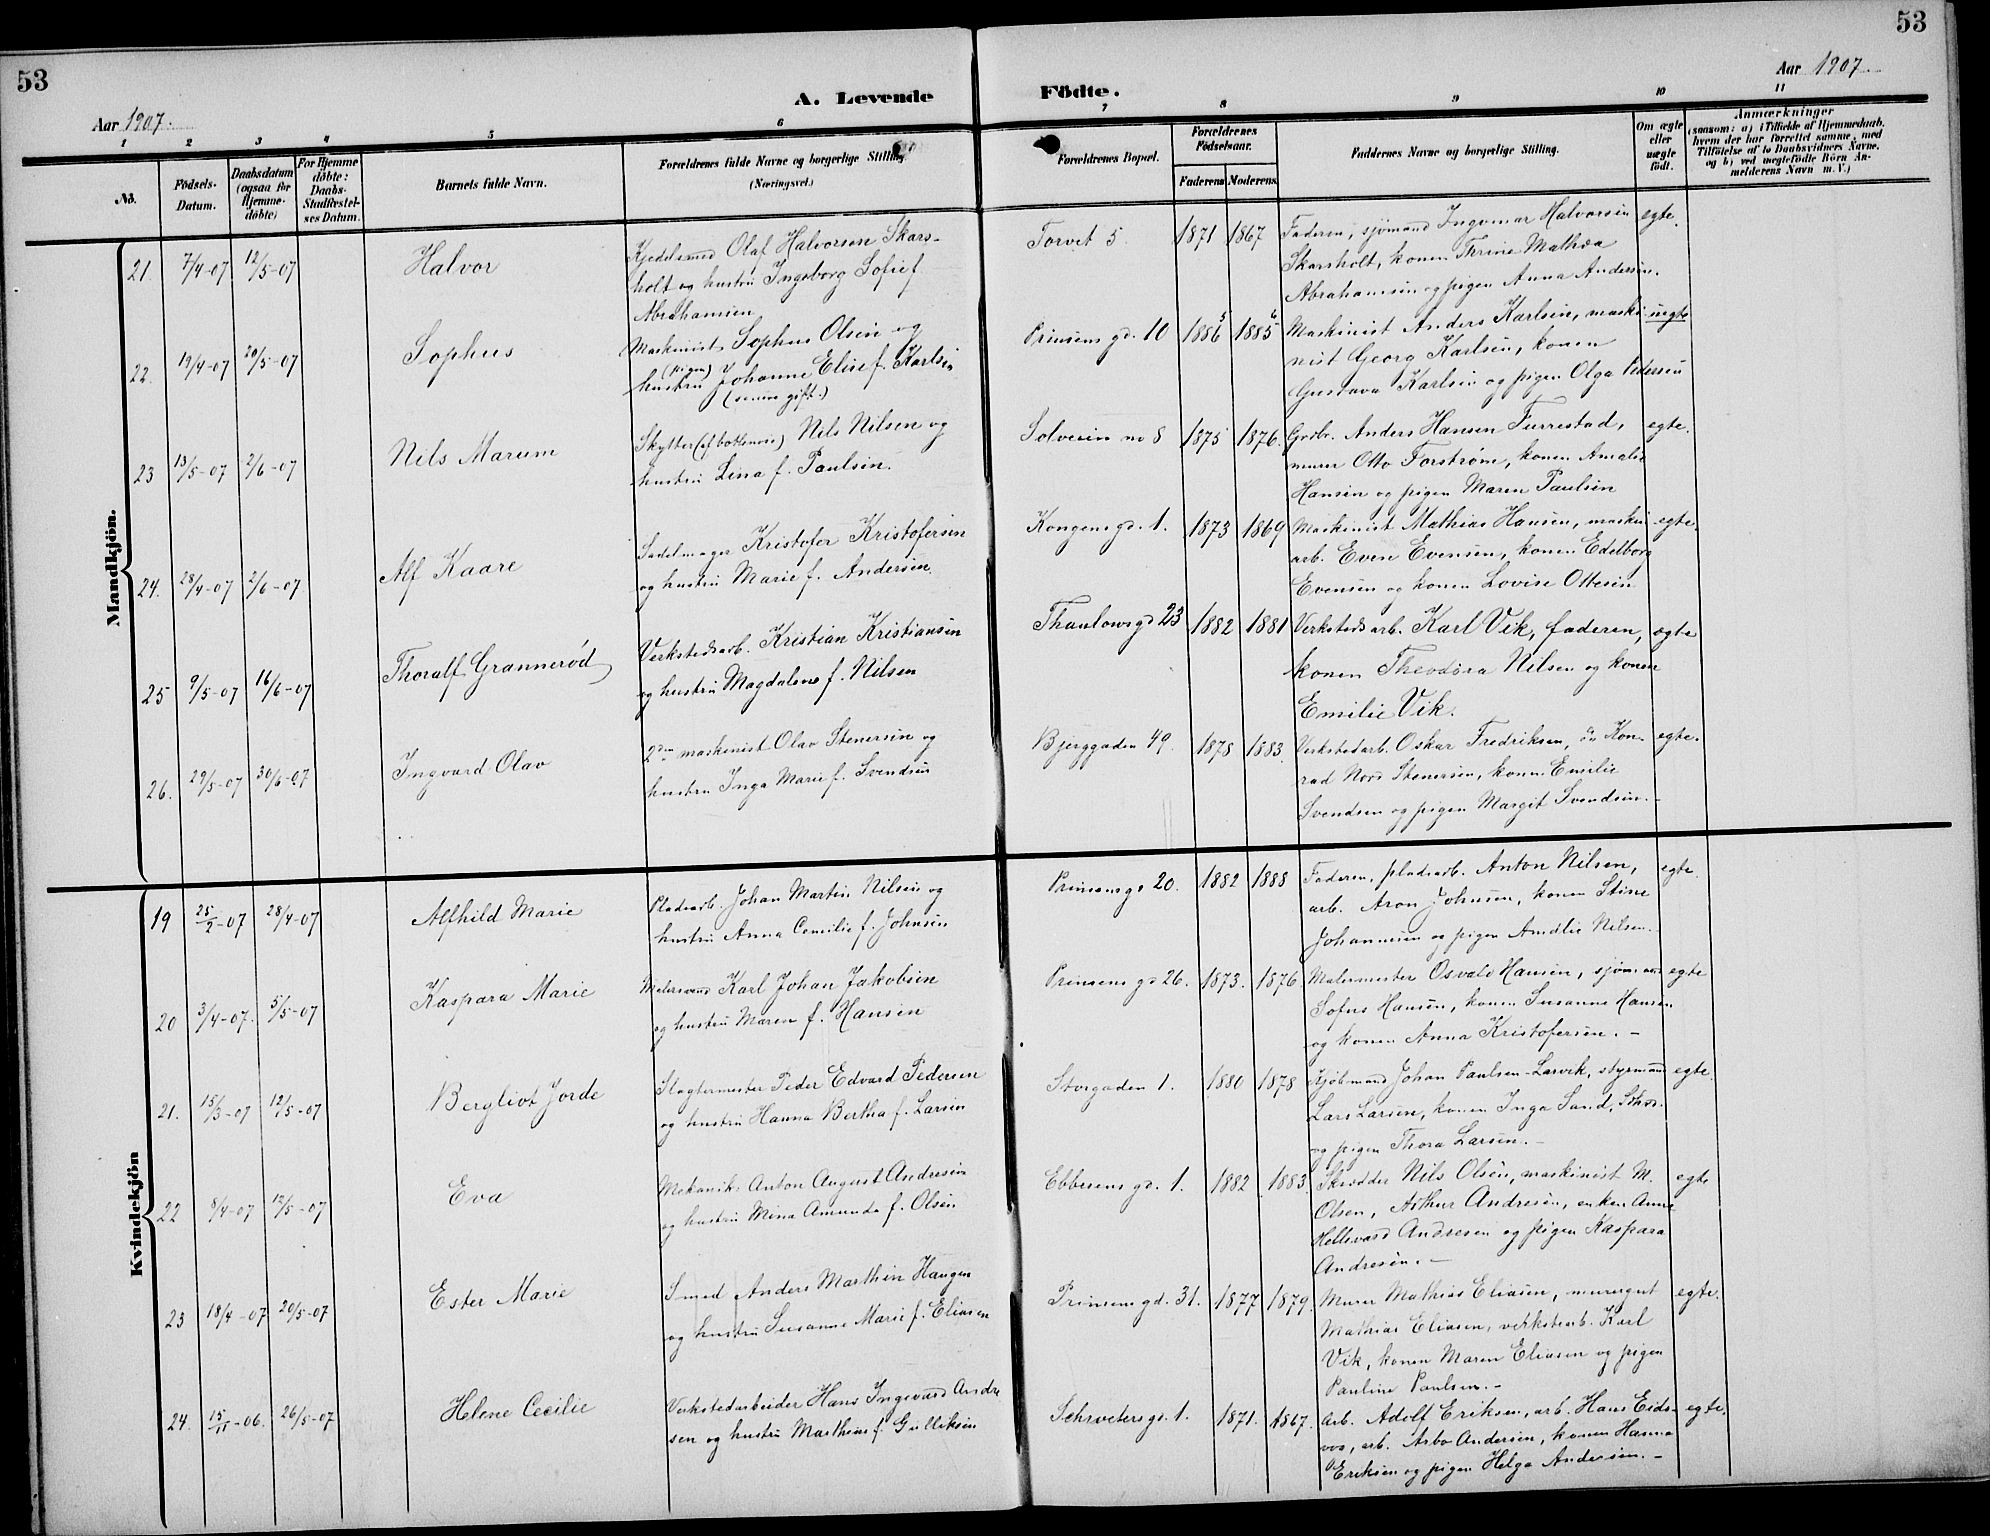 53
53
Aar 1907.
A. Levende
Födte.
Aar 1907
1 2 3 4 5 6 7 8 9 10 11
No.
Födsels-Datum.
Daabsdatum (ogsaa for Hjemme-döbte)
For Hjemme döbte: Daabs-Stadfæstel-ses Datum.
Barnets fulde Navn.
Forældrenes fulde Navne og borgerlige Stilling. (Næringsvei.)
Forældrenes Bopæl.
Forældrenes Fødselsaar.
Faderens Moderens
Faddernes Navne og borgerlige Stilling.
Om ægte eller uægte födt.
Anmærkninger (saasom: a) i Tilfælde af Hjemmedaab, hvem der har forrettet samme, med Tilföielse af to Daabsvidners Navne, og b) ved uægtefödte Börn An-melderens Navn m. V.)
Mandkjön.
21. 7/4-07 12/5-07 Halvor
Kjedelsmed Olaf Halvorsen Skars-
holt og hustru Ingeborg Sofie f
Abrahamsen
Torvet 5. 1871 1867
Faderen, sjømand Ingvomar Halvorsen egte.
Skarsholt, konen Thrine Mathea
Abrahamsen og pigen Anna Andersen.
22. 19/4-07 20/5-07 Sophus
Maskinist Sophus Olsen og
(pigen)
hustru Johanne Elise f. Karlsen
(senere gift.)
Prinsens gd. 10 1886 5 1885 6
Maskinist Anders Karlsen, maski- uegte
nist Georg Karlsen, konen
Gustava Karlsen og pigen Olga Pedersen
23 13/5-07 2/6-07 Nils Marum
Skytter (af bottlenoie) Nils Nilsen og
hustru Lina f. Paulsen.
Solveien no 8 1875 1876.
Grdbr. Anders Hansen Furrestad, egte.
murer Otto Forstrøm, konen Amalie
Hansen og pigen Maren Paulsen
24. 28/4-07 2/6-07 Alf Kaare
Sadelmager Kristofer Kristofersen
og hustru Marie f. Andersen.
Kongens gd. 1. 1873 1869
Maskinist Mathias Hansen, maskin egte.
arb. Even Evensen, konen Edelborg
Evensen og konen Lovise Ottesen
25 9/5-07 16/6-07 Thoralf Grannerød
Verkstedsarb. Kristian Kristiansen
og hustru Magdalene f. Nilsen
Thaulows gd 23 1882 1881
Verksteds arb. Karl Vik, faderen, egte
konen Theodora Nilsen og konen
Emilie Vik.
26. 29/5-07 30/6-07 Ingvard Olav
2den maskinist Olav Stenersen og
hustru Inga Marie f. Svendsen
Bjerggaden 49. 1878 1883.
Verkstedarb. Oskar Fredriksen, do Kon- egte.
rad Nord Stenersen, konen Emilie
Svendsen og pigen Margit Svendsen.-
Kvindekjön
19 25/2-07 28/4-07 Alfhild Marie
Pladsarb. Johan Martin Nilsen og
hustru Anna Comilie f. Johnsen
Prinsensgd 20. 1882 1888
Faderen, pladsarb. Anton Nilsen, egte.
arb. Aron Johnsen, konen Stine
Johannesen og pigen Amalie Nilsen.-
20 3/4-07. 5/5-07 Kaspara Marie
Malersvend Karl Johan Jakobsen
og hustru Maren f. Hansen
Prinsens gd 26. 1873. 1876.
Malermester Osvald Hansen, sjømand egte
Sofus Hansen, konen Susanne Hansen
og konen Anna Kristofersen.-
21. 15/3-07 12/5-07 Bergliot Jorde
Slagtermester Peder Edvard Pedersen
og hustru Hanna Bertha f. Larsen
Storgaden 1. 1880 1878
Kjøbmand Johan Paulsen-Larvik, styrmand egte.
Lars Larsen, konen Inga Sand,
og pigen Thora Larsen.-
22 8/4-07 12/5-07 Eva
Mekanik. Anton August Andresen
og hustru Mina Amunda f. Olsen
Ebbesens gd. 1. 1882 1883.
Skrædder Nils Olsen, maskinist M. egte
Olsen, Arthur Andresen, enken Anne
Hellevard Andresen og pigen Kaspara
Andresen.-
23 18/4-07 20/5-07 Ester Marie
Smed Anders Marthin Haugen
og hustru Susanne Marie f. Eliasen
Prinsens gd. 31. 1877 1879.
Murer Mathias Eliasen, murergut egte.
Mathias Eliasen, verkstarb. Karl
Vik, konen Maren Eliasen og pigen
Pauline Paulsen.-
24. 15/11-06. 26/5-07 Helene Cecilie
Verkstedarbeider Hans Ingevard Andre
sen og hustru Marthine f. Gulliksen
Schrøetersgd. 1. 1871. 1867.
Arb. Adolf Eriksen, arb. Hans Eids- egte.
vos, arb. Arbo Andersen, konen Hanna
Eriksen og pigen Helga Andersen.-